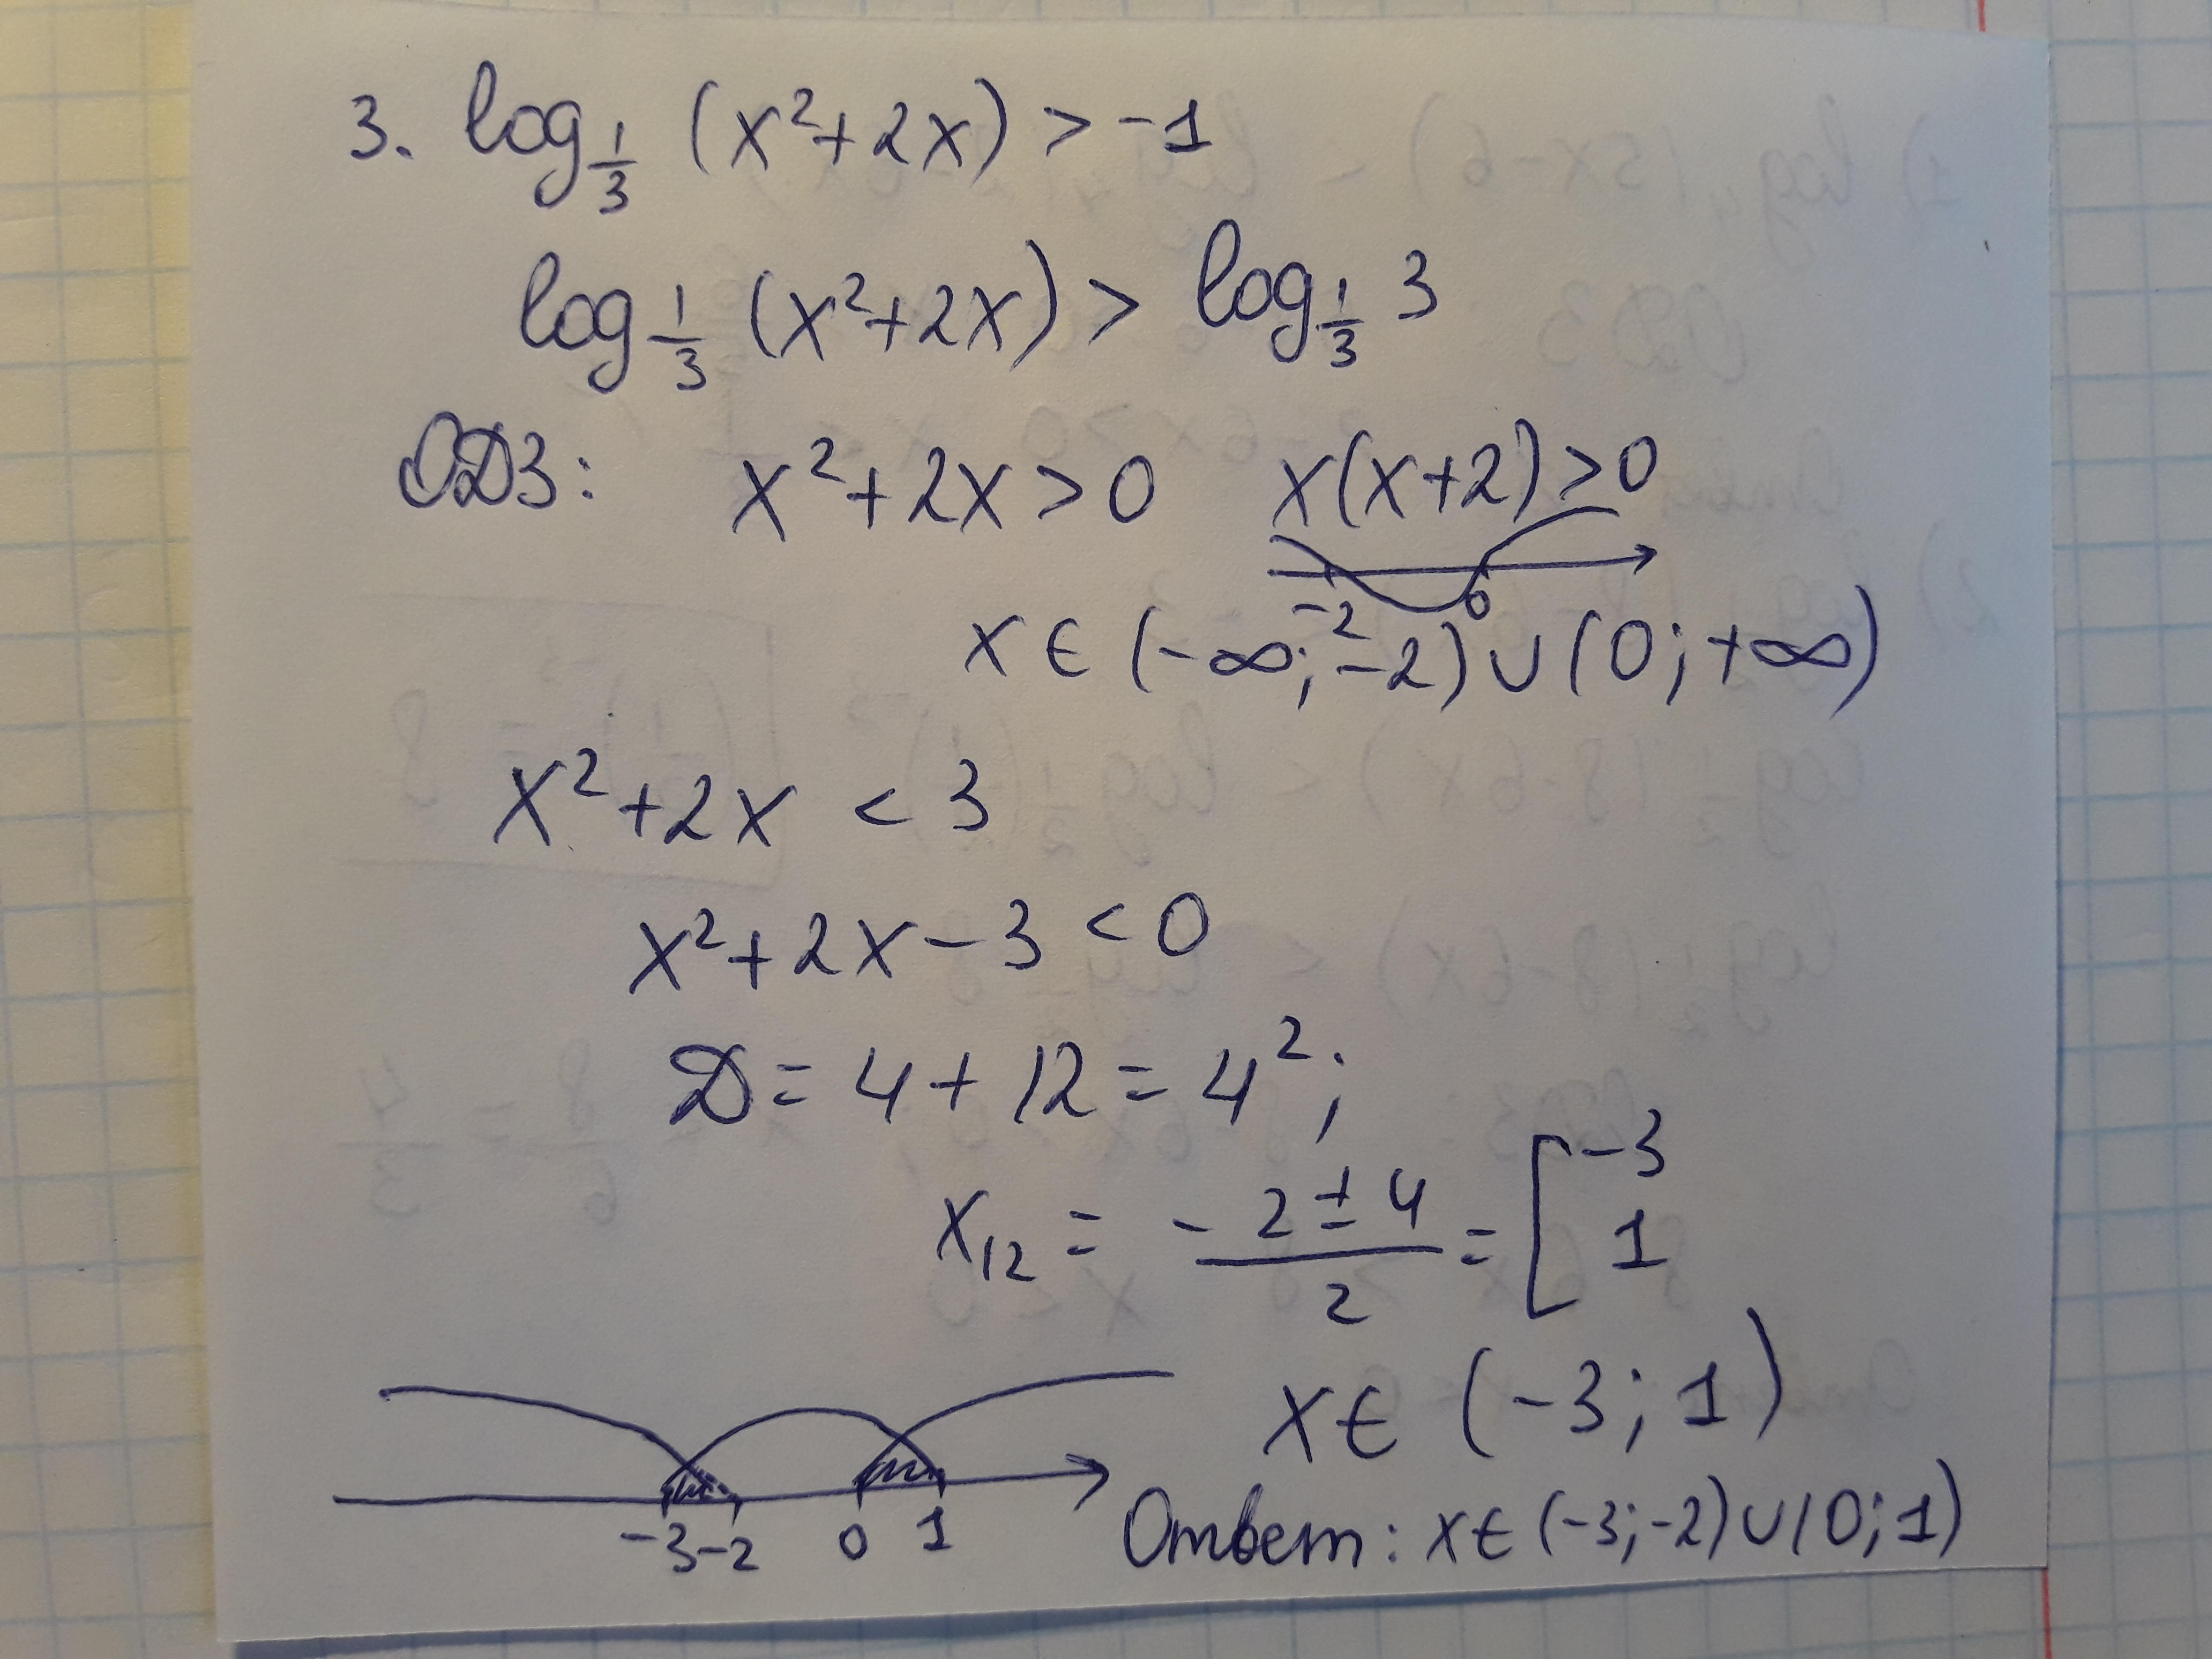 3. log_{1/3} (x² + 2x) > -1
log_{1/3} (x² + 2x) > log_{1/3} 3
ОДЗ: x² + 2x > 0 x(x+2) > 0
-2 0
x ∈ (-∞; -2) ∪ (0; +∞)
x² + 2x < 3
x² + 2x - 3 < 0
D = 4 + 12 = 4²;
x₁₂ = (-2 ± 4)/2 = [ -3
1
x ∈ (-3; 1)
-3 -2 0 1
Ответ: x ∈ (-3; -2) ∪ (0; 1)